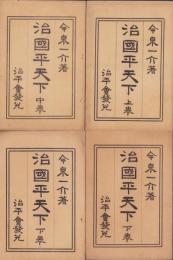 今泉一介著
治國平天下 上巻
治平會發兌
今泉一介著
治國平天下 中巻
治平會發兌
今泉一介著
治國平天下 下巻
治平會發兌
今泉一介著
治國平天下 下巻
治平會發兌